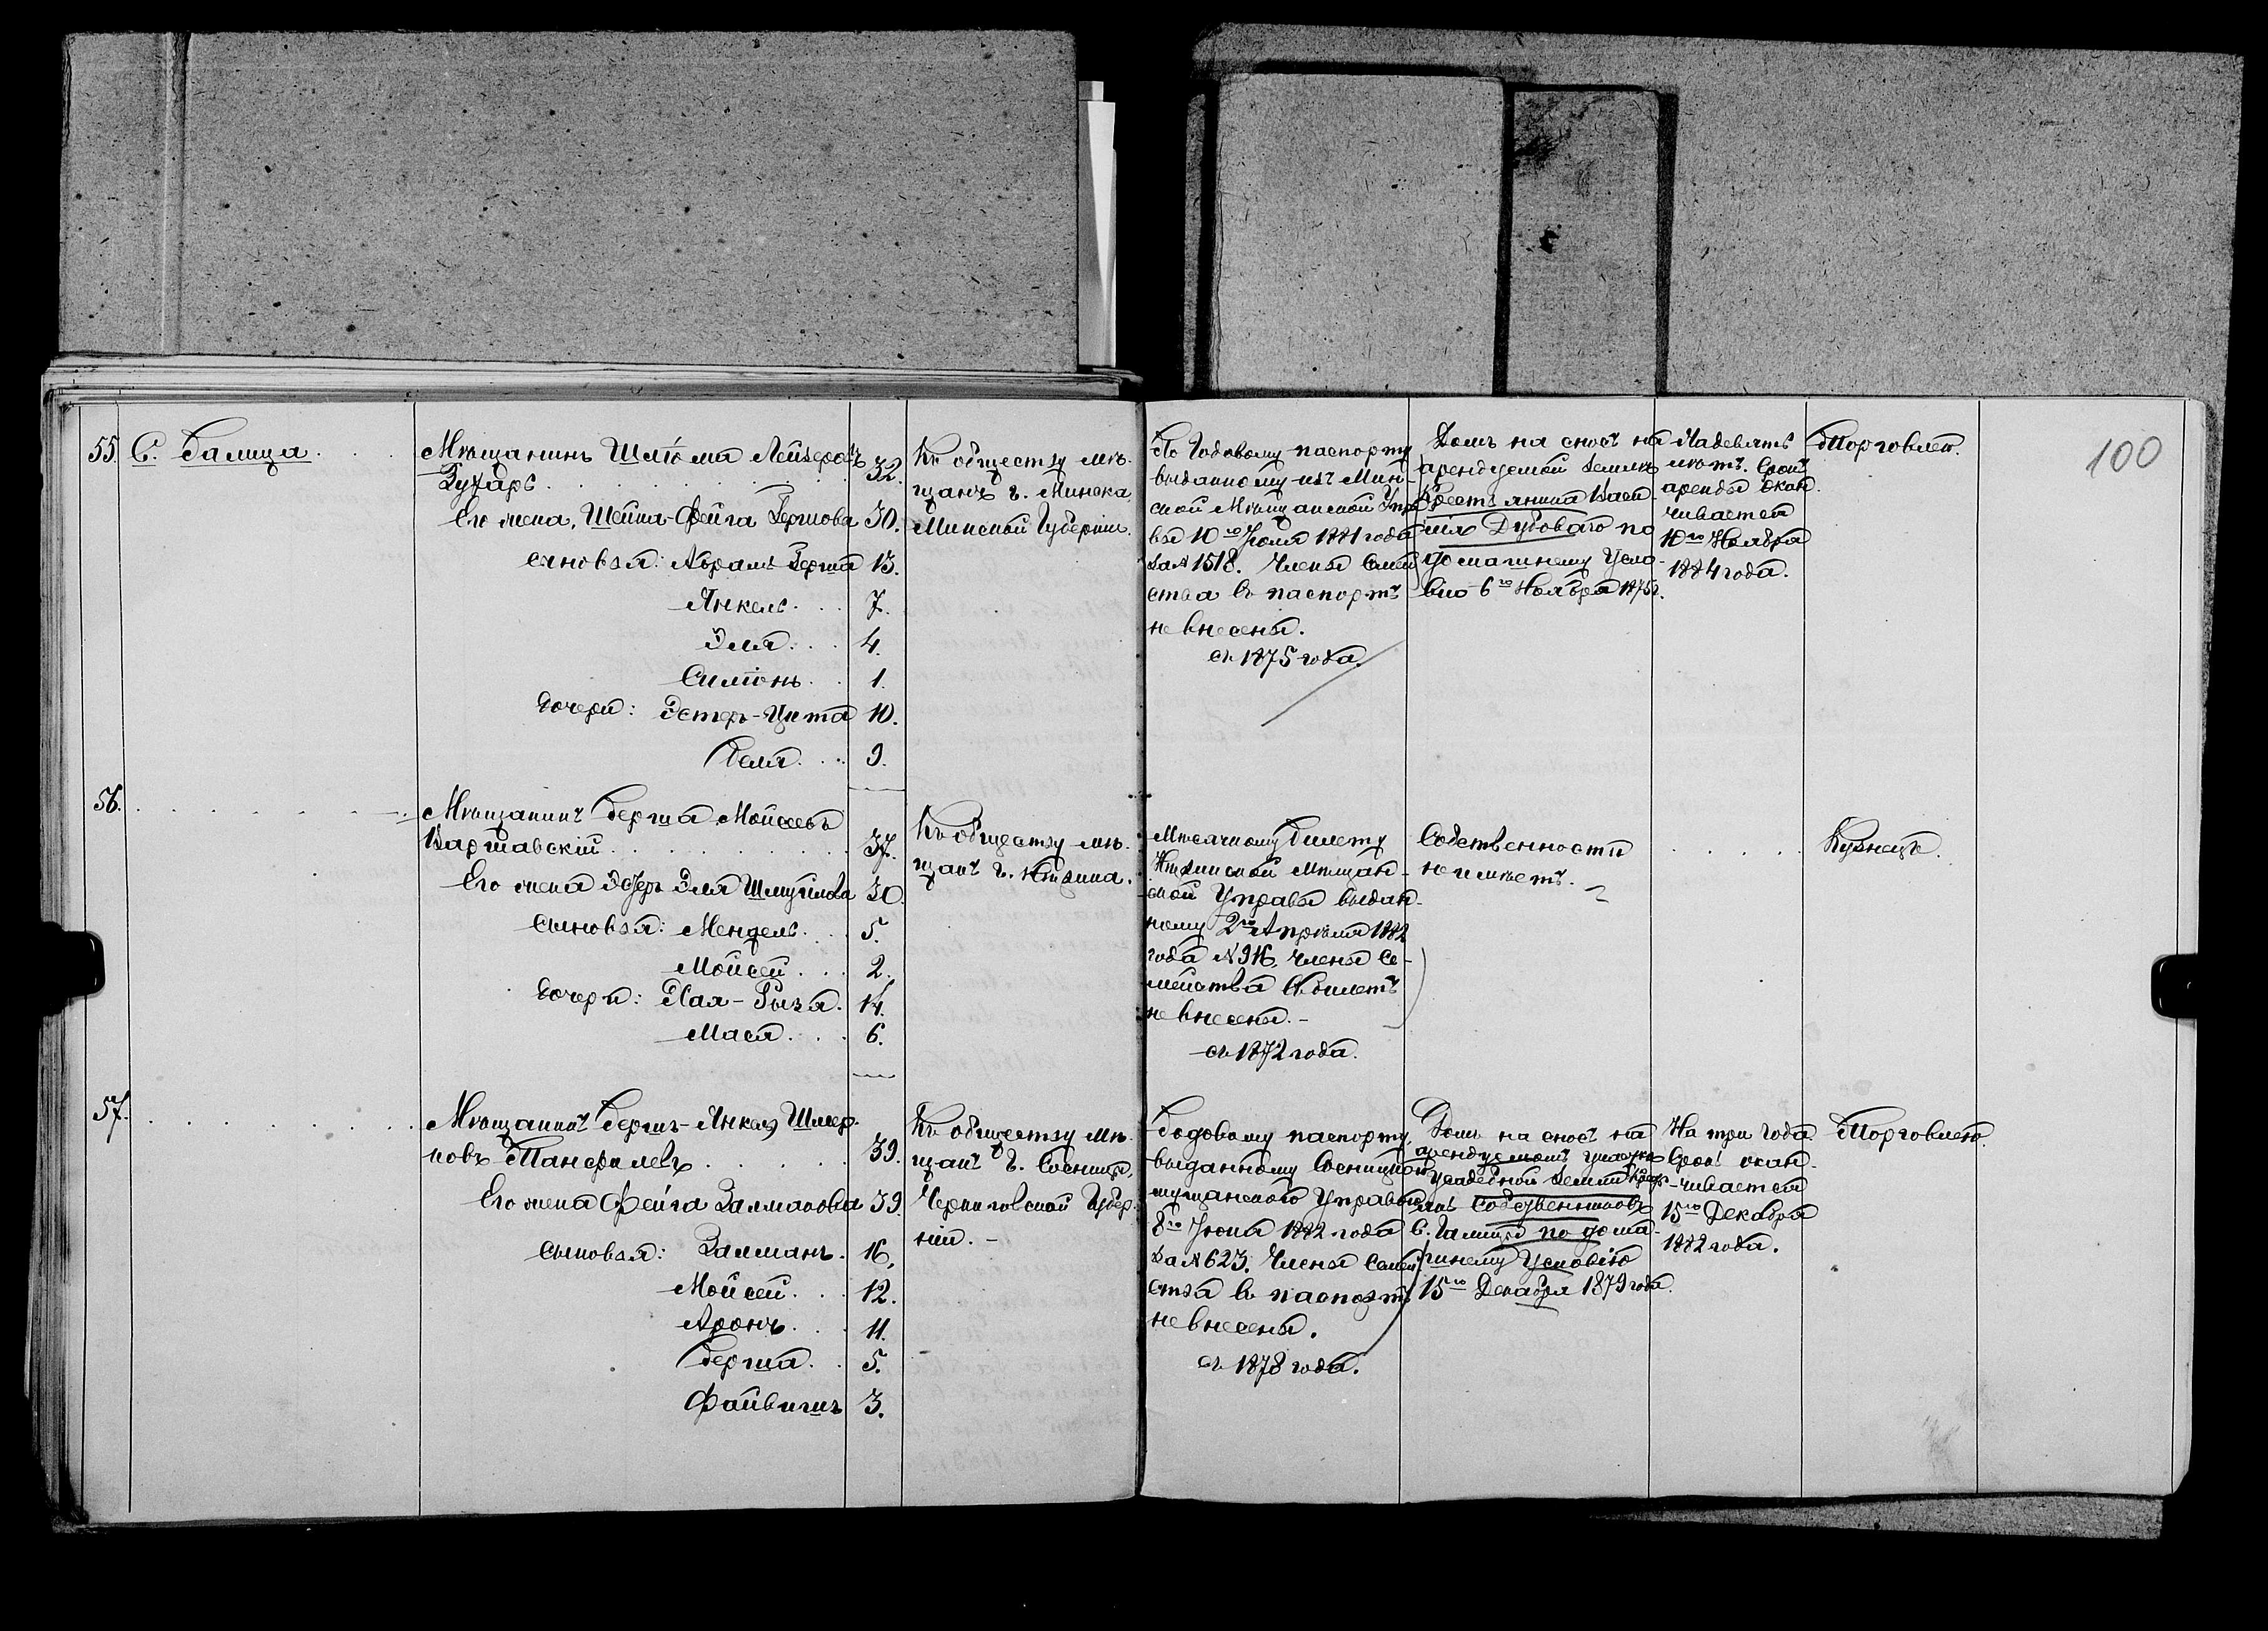 100
55. С. Галица . . .
Мѣщанинъ Шлёма Лейзеровъ
32.
Его жена, Шейна-Фейга Гершова 30.
сыновья: Абрамъ Герша 13.
Янкель . . . 7.
Эля . . . 4.
Симонъ . . 1.
дочери: Эстеръ-Цита 10.
Геля . . . 9.
Къ обществу мѣ-
щанъ г. Минска,
Минской Губерніи.
По Годовому паспорту
выданному изъ Мин-
ской Мѣщанской Упра
вы 10го Іюля 1881 года
за № 1518. Члены Семей
ства въ паспортъ
не внесены.
съ 1875 года.
Домъ на сносъ на
арендуемой землѣ
Крестьянина Васи
лія Дубоваго по
домашнему Усло-
вію 6го Ноября 1875 г.
На девять
лѣтъ. Срокъ
аренды окан
чивается
10го Ноября
1884 года.
Торговлею.
56. . . . . . . .
Мѣщанинъ Герша Мойсеевъ
Варшавскій . . . . . . . . 37.
Его жена Эстеръ Эля Шмуйлова 30.
Сыновья: Мендель . . . 5.
Мойсей . . . 2.
дочери: Хая-Рыза . 14.
Мася . . . 6.
Къ обществу мѣ-
щанъ г. Нѣжина.
Мѣсячному билету
Нѣжинской Мѣщан-
ской Управы выдан-
ному 2го Апрѣля 1882
года № 916. Члены Се-
мейства въ билетъ
не внесены. -
съ 1872 года.
Собственности
не имѣетъ. -
. . . . .
Кузнецъ.
57. . . . . . . .
Мѣщанинъ Гершъ-Янкель Шмер-
ковъ Танфилевъ . . . . . . 39.
Его жена Фейга Залманова 39.
Сыновья: Залманъ . 16.
Мойсей . . . 12.
Аронъ . . . 11.
Герша . . 5.
Файвишъ 3.
Къ обществу мѣ-
щанъ г. Сосницы,
Черниговской Губер-
ніи. -
Годовому паспорту,
выданному Сосницкою
мѣщанскою Управою
8го Іюня 1882 года
за № 623. Члены Семей
ства въ паспортъ
не внесены.
съ 1878 года.
Домъ на сносъ на
арендуемомъ участкѣ
усадебной земли Крест-
янъ Собственниковъ
с. Галицы по дома-
шнему Условію
15го Декабря 1879 года.
На три года.
Срокъ окан-
чивается
15го Декабря
1882 года.
Торговлею.